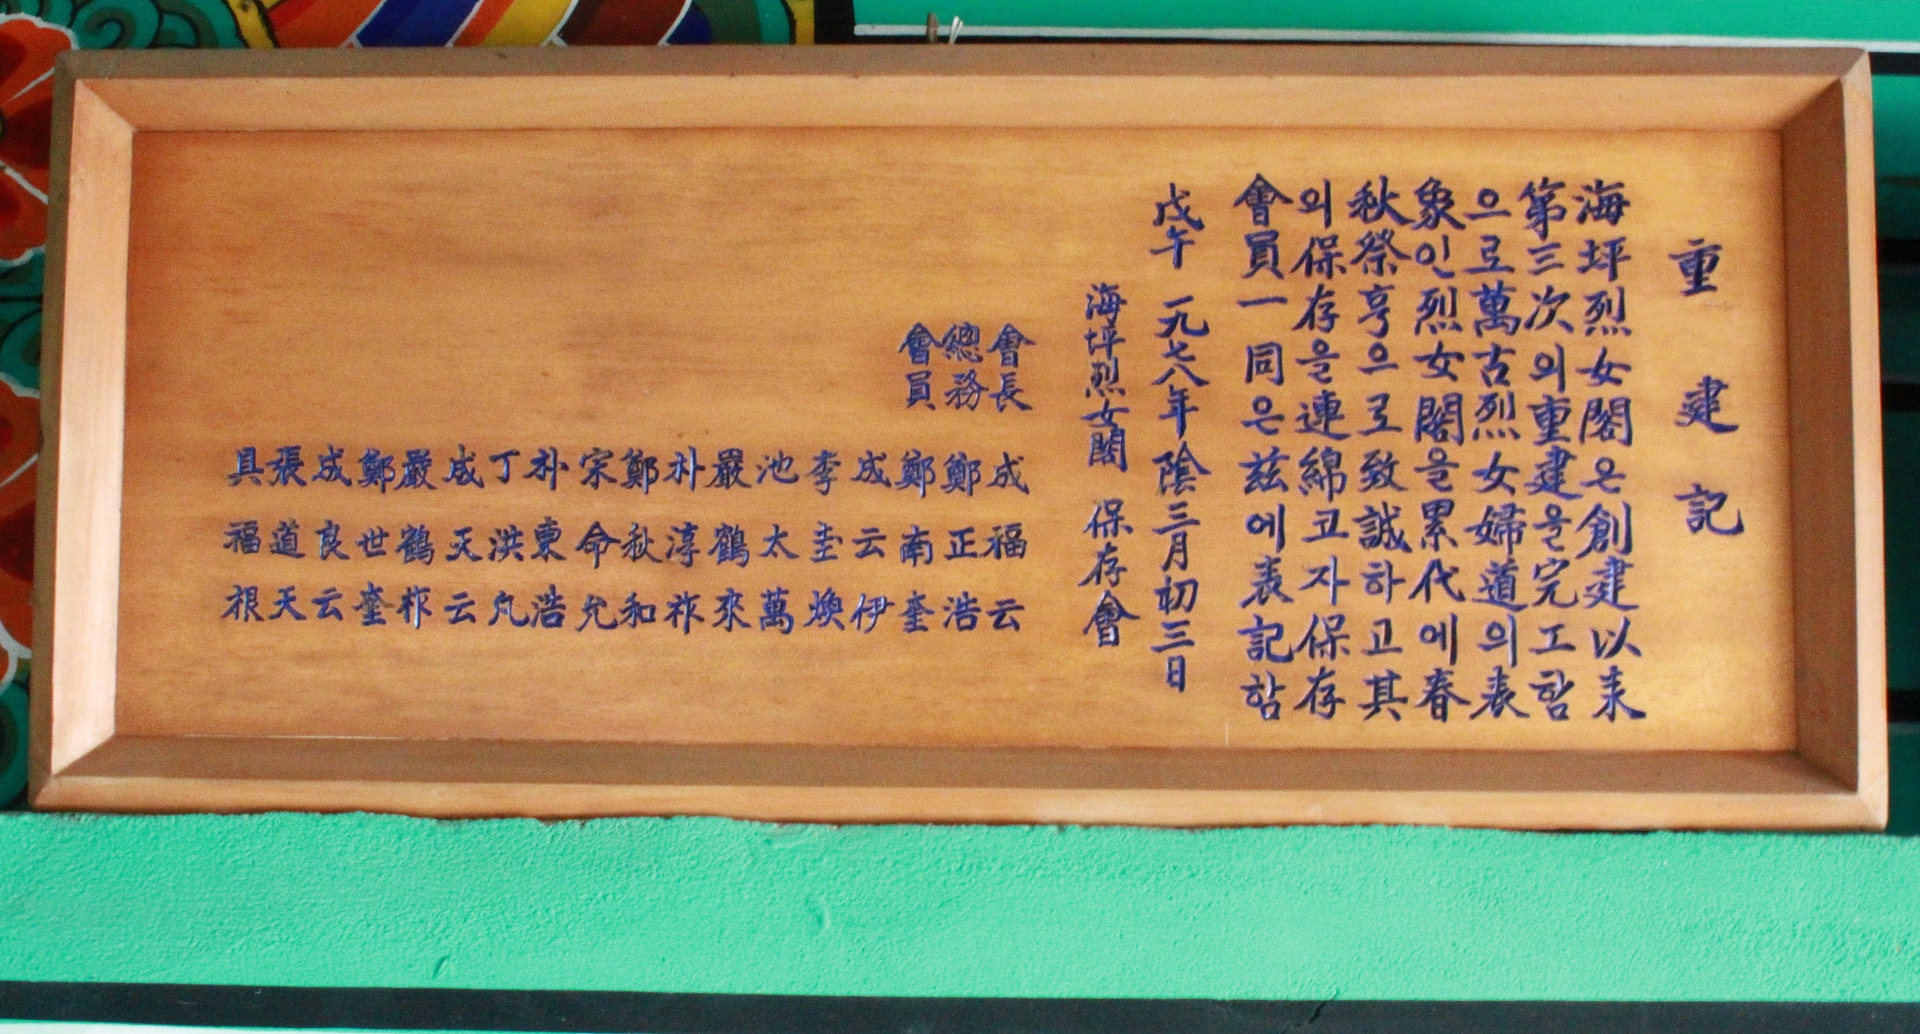 重建記
海坪烈女閣은創建以来
第三次의重建을完工함
으로萬古烈女婦道의表
象인烈女閣을累代에春
秋祭亨으로致誠하고其
의保存을連綿코자保存
會員一同은玆에表記함
戊午 一九七八年 陰三月初三日
海坪烈女閣 保存會
會長 成福云
總務 鄭正浩
會員 鄭南奎
成云伊
李圭煥
池太萬
嚴鶴來
朴淳祚
鄭秋和
宋命允
朴東浩
丁洪凡
成天云
嚴鶴柞
鄭世奎
成良云
張道天
具福根